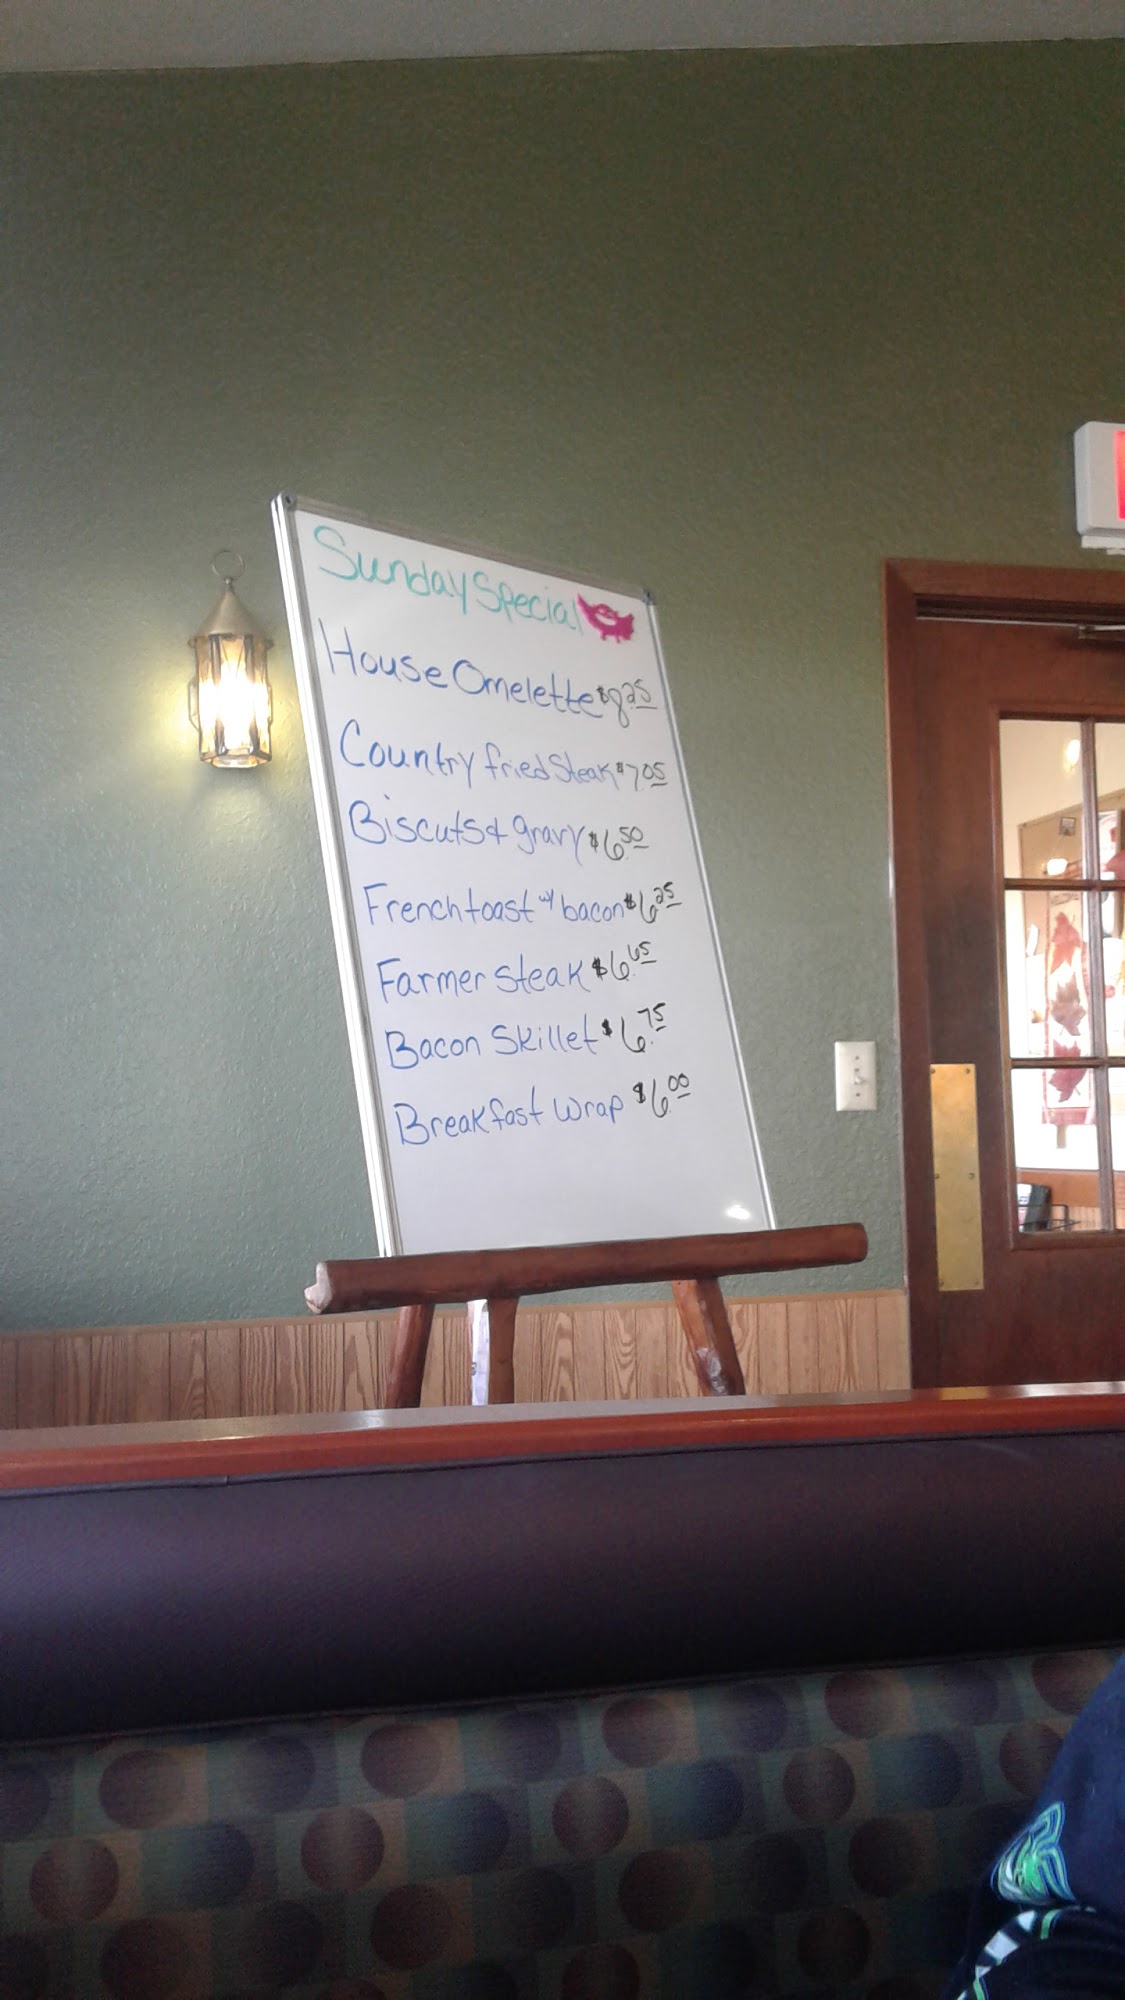 Sunday Special
House Omelette $8.25
Country fried Steak $7.05
Biscuts & gravy $6.50
French toast w/ bacon $6.25
Farmer Steak $6.65
Bacon Skillet $6.75
Breakfast wrap $6.00